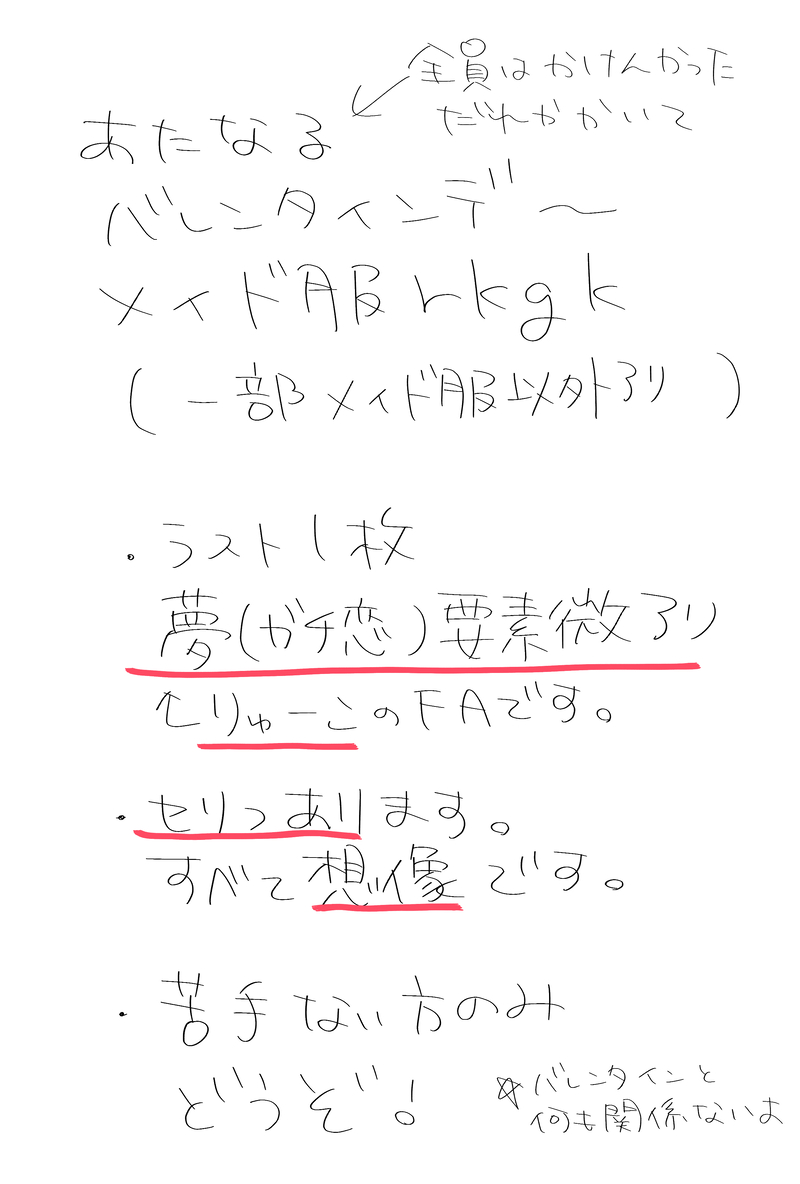 全員はかけんかった
だれかかいて
あたなる
バレンタインデ〜
メイド服rkgk
(一部メイド服以外アリ)
・ラスト1枚
夢(ガチ恋)要素微アリ
↑りゅーこのFAです。
・セリフあります。
すべて想像です。
・苦手ない方のみ
どうぞ!
☆バレンタインと
何も関係ないよ